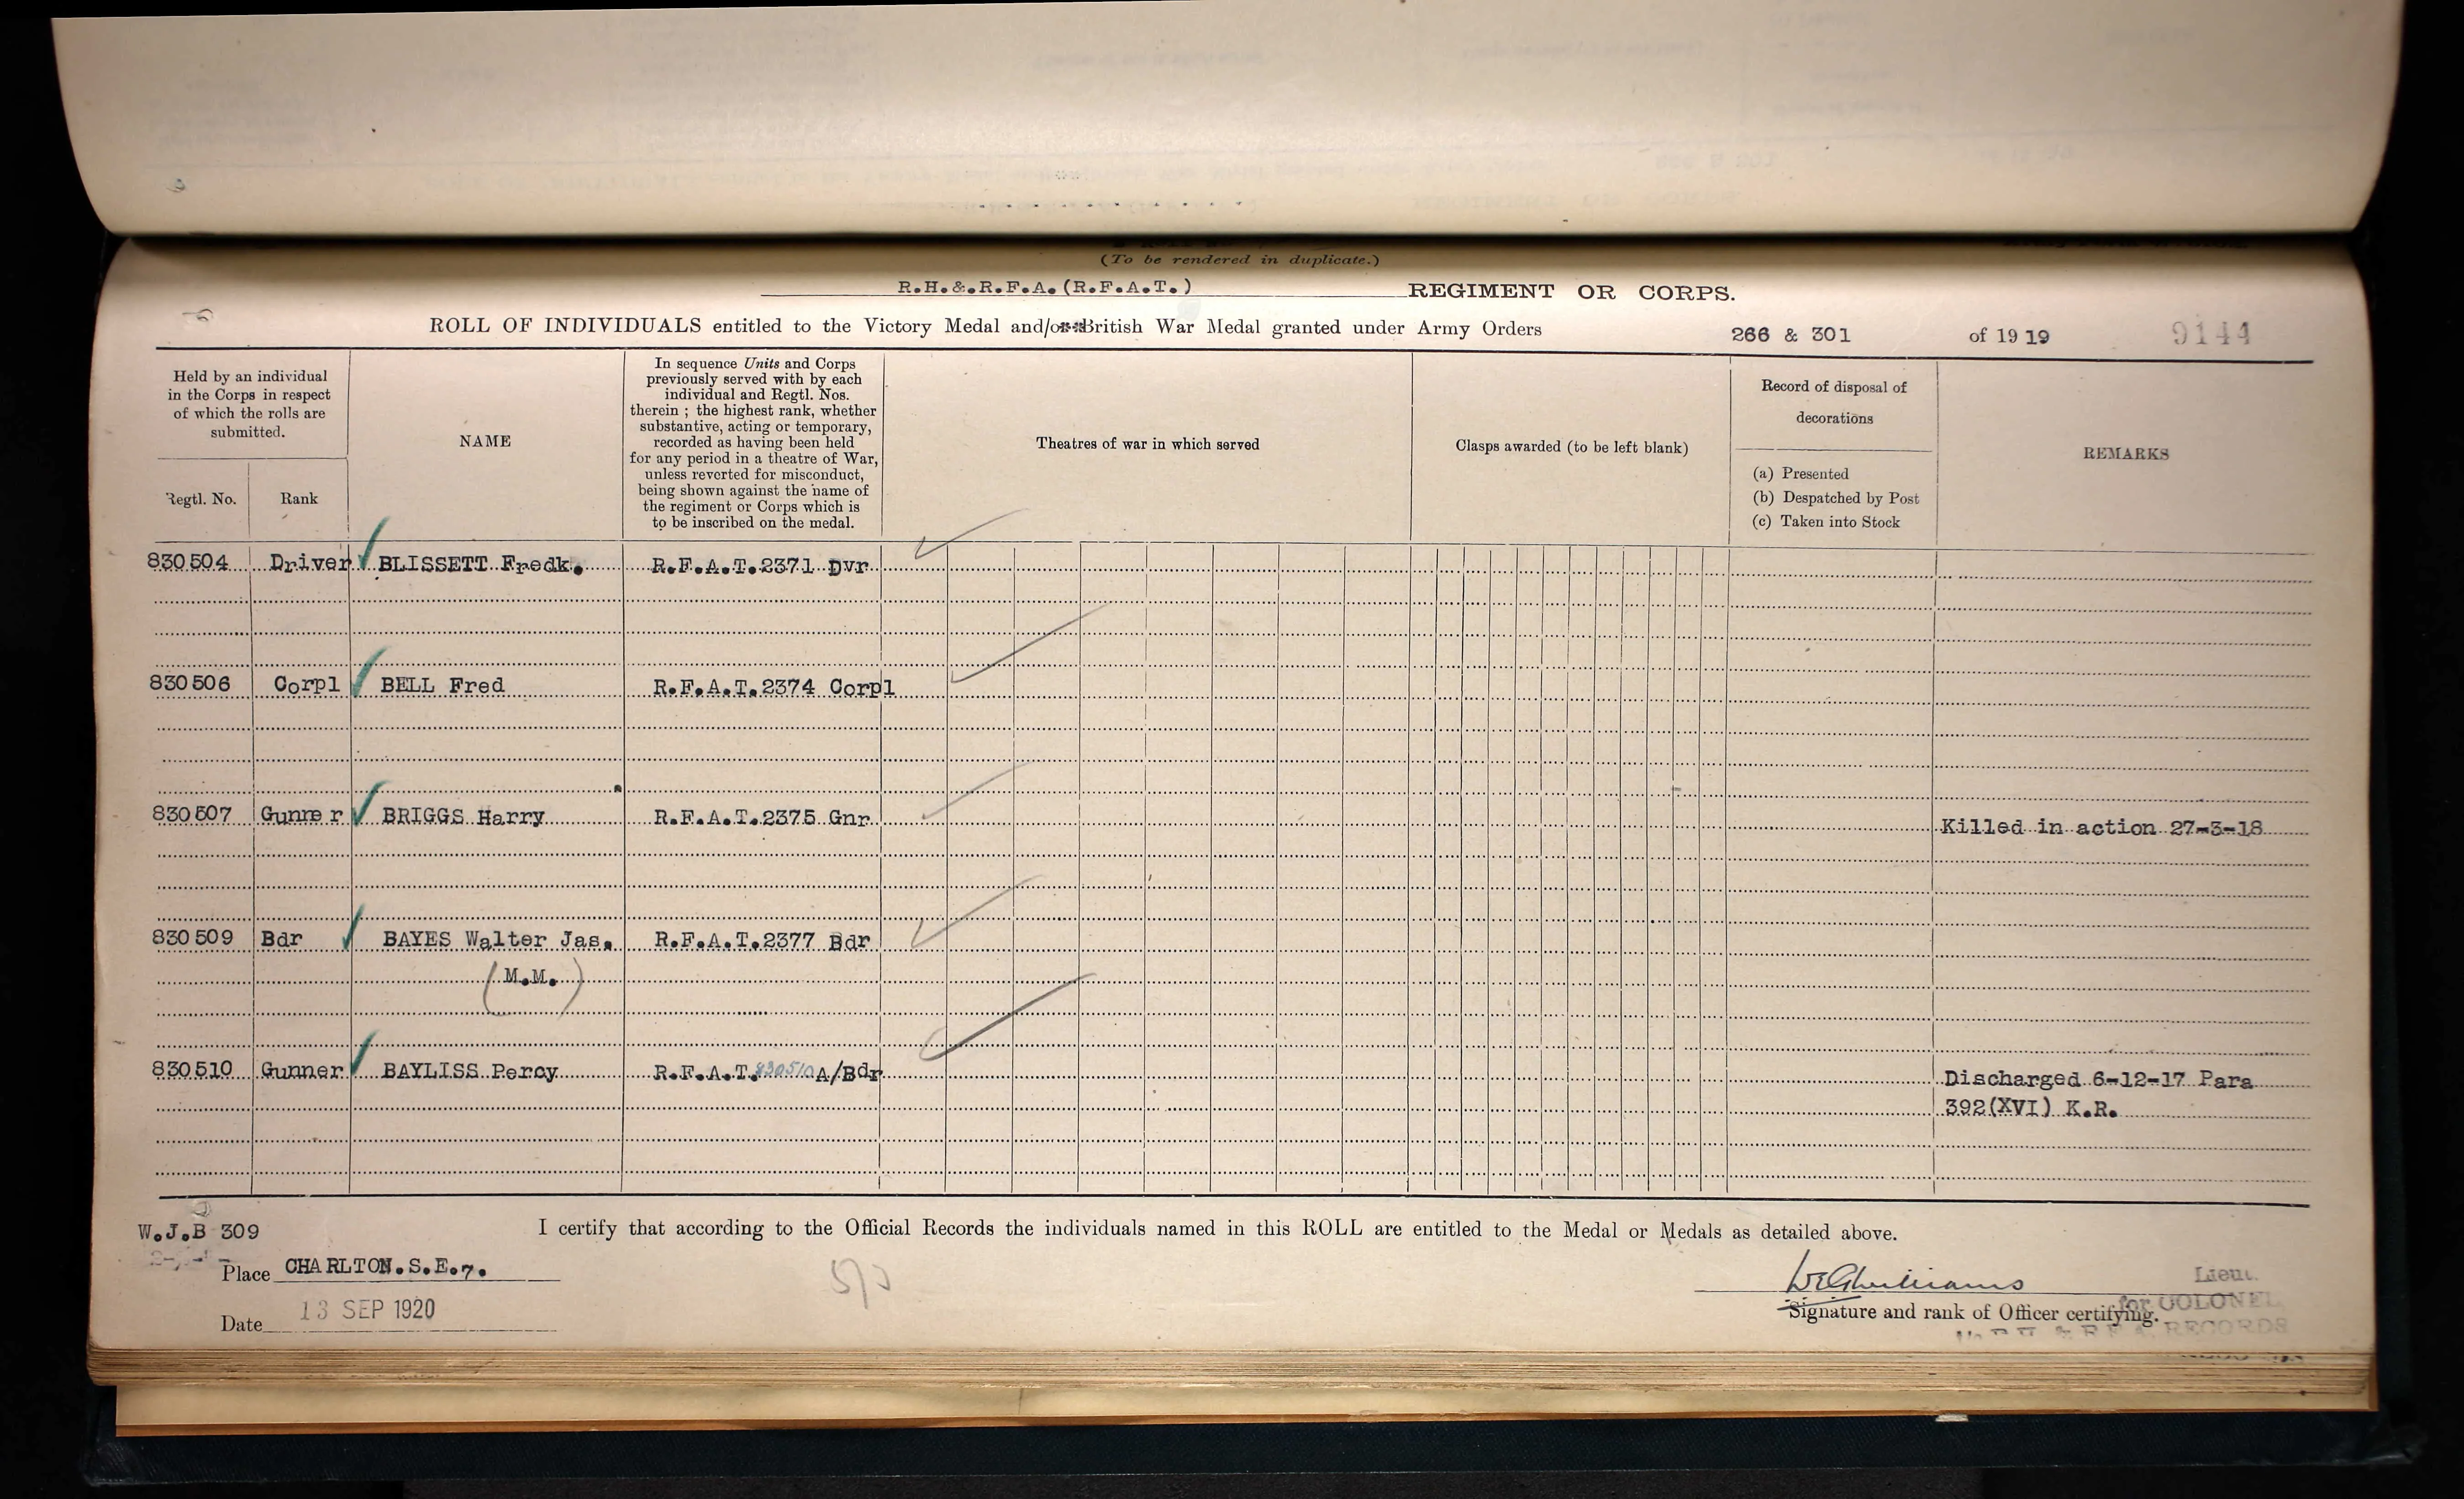 (To be rendered in duplicate.)
R.H.&.R.F.A.(R.F.A.T.) REGIMENT OR CORPS.
ROLL OF INDIVIDUALS entitled to the Victory Medal and/or British War Medal granted under Army Orders 266 & 301 of 1919 9144
Held by an individual
in the Corps in respect
of which the rolls are
submitted.
Regtl. No. Rank
NAME
In sequence Units and Corps
previously served with by each
individual and Regtl. Nos.
therein ; the highest rank, whether
substantive, acting or temporary,
recorded as having been held
for any period in a theatre of War,
unless reverted for misconduct,
being shown against the name of
the regiment or Corps which is
to be inscribed on the medal.
Theatres of war in which served
Clasps awarded (to be left blank)
Record of disposal of
decorations
(a) Presented
(b) Despatched by Post
(c) Taken into Stock
REMARKS
830504 Driver BLISSETT Fredk. R.F.A.T.2371 Dvr
830506 Corpl BELL Fred R.F.A.T.2374 Corpl
830507 Gunner BRIGGS Harry R.F.A.T.2375 Gnr Killed in action 27-3-18
830509 Bdr BAYES Walter Jas. R.F.A.T.2377 Bdr
(M.M.)
830510 Gunner BAYLISS Percy R.F.A.T.830510 A/Bdr Discharged 6-12-17 Para
392(XVI) K.R.
W.J.B 309 I certify that according to the Official Records the individuals named in this ROLL are entitled to the Medal or Medals as detailed above.
Place CHARLTON.S.E.7.
Date 13 SEP 1920
Lieut.
for COLONEL
Signature and rank of Officer certifying.
R.H. & R.F.A. RECORDS